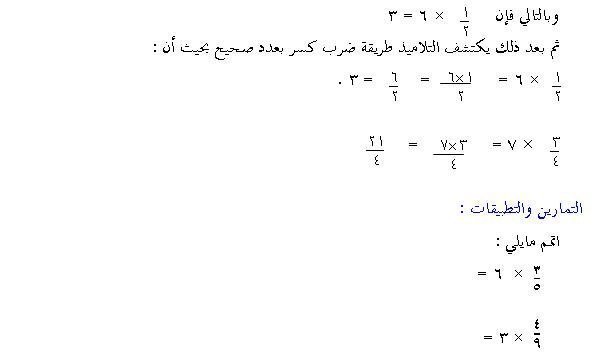 وبالتالي فإن ١/٢ × ٦ = ٣
ثم بعد ذلك يكتشف التلاميذ طريقة ضرب كسر بعدد صحيح بحيث أن :
١/٢ × ٦ = ٦×١/٢ = ٦/٢ = ٣ .
٣/٤ × ٧ = ٧×٣/٤ = ٢١/٤
التمارين والتطبيقات :
اتمم مايلي :
٣/٥ × ٦ =
٤/٩ × ٣ =